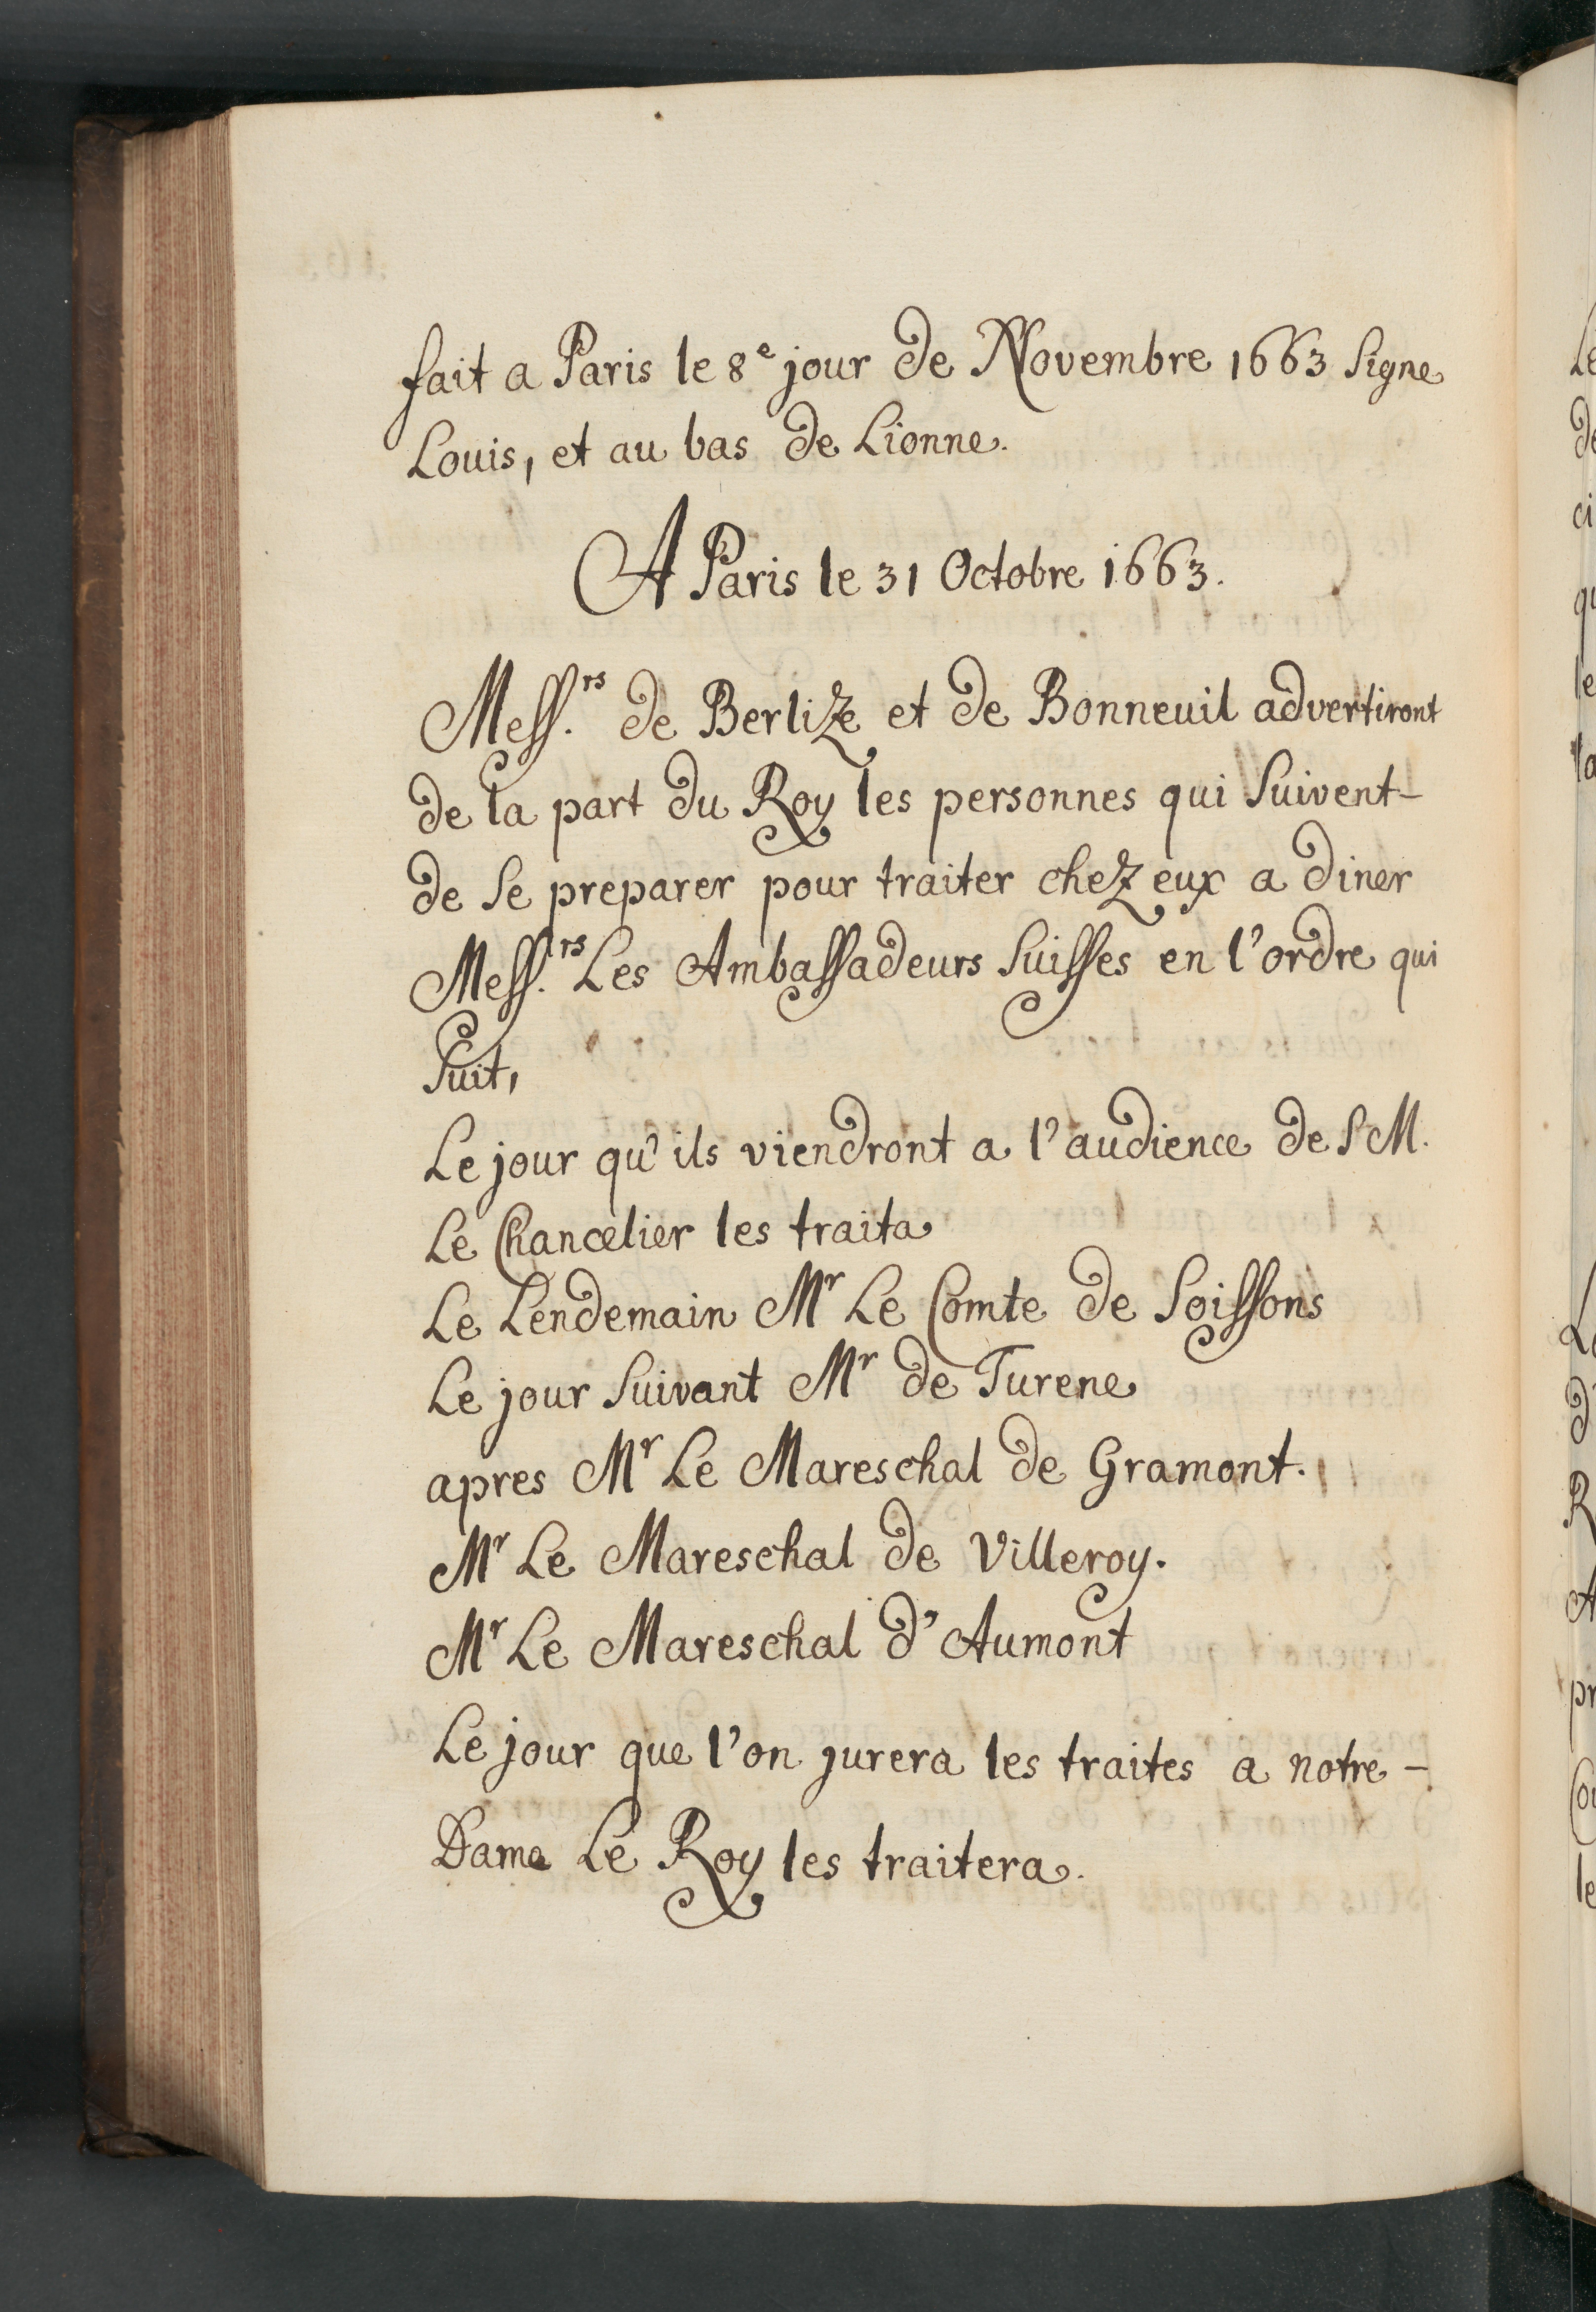 fait a Paris le 8e jour de Novembre 1663 Signe
Louis, et au bas de Lionne.
A Paris le 31 Octobre 1663.
Mess.rs de Berlize et de Bonneuil advertiront
de la part du Roy les personnes qui Suivent-
de Se preparer pour traiter chez eux a diner
Mess.rs Les Ambassadeurs Suisses en l'ordre qui
Suit,
Le jour qu'ils viendront a l'audience de S M.
Le Chancelier les traita
Le Lendemain Mr Le Comte de Soissons
Le jour Suivant Mr de Turene
apres Mr Le Mareschal de Gramont.
Mr Le Mareschal de Villeroy.
Mr Le Mareschal d'Aumont
Le jour que l'on jurera les traites a notre-
Dame Le Roy les traitera.